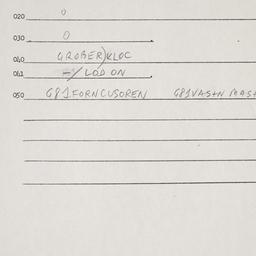 020 0
030 0
040 GROBER)KLOC
041 -/ LOD ON
050 G81FORNCUSOREN G81VAS+N MAS+